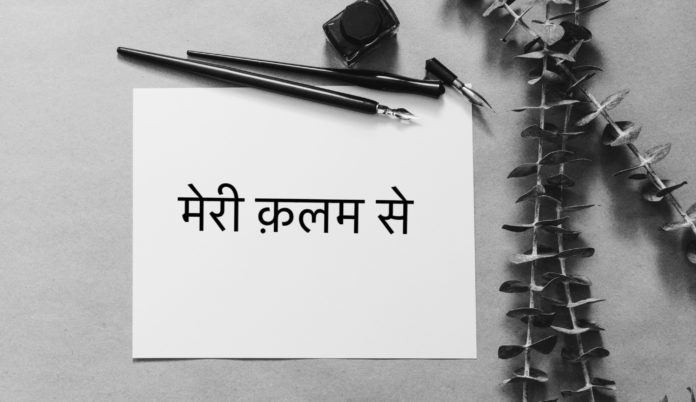 मेरी क़लम से